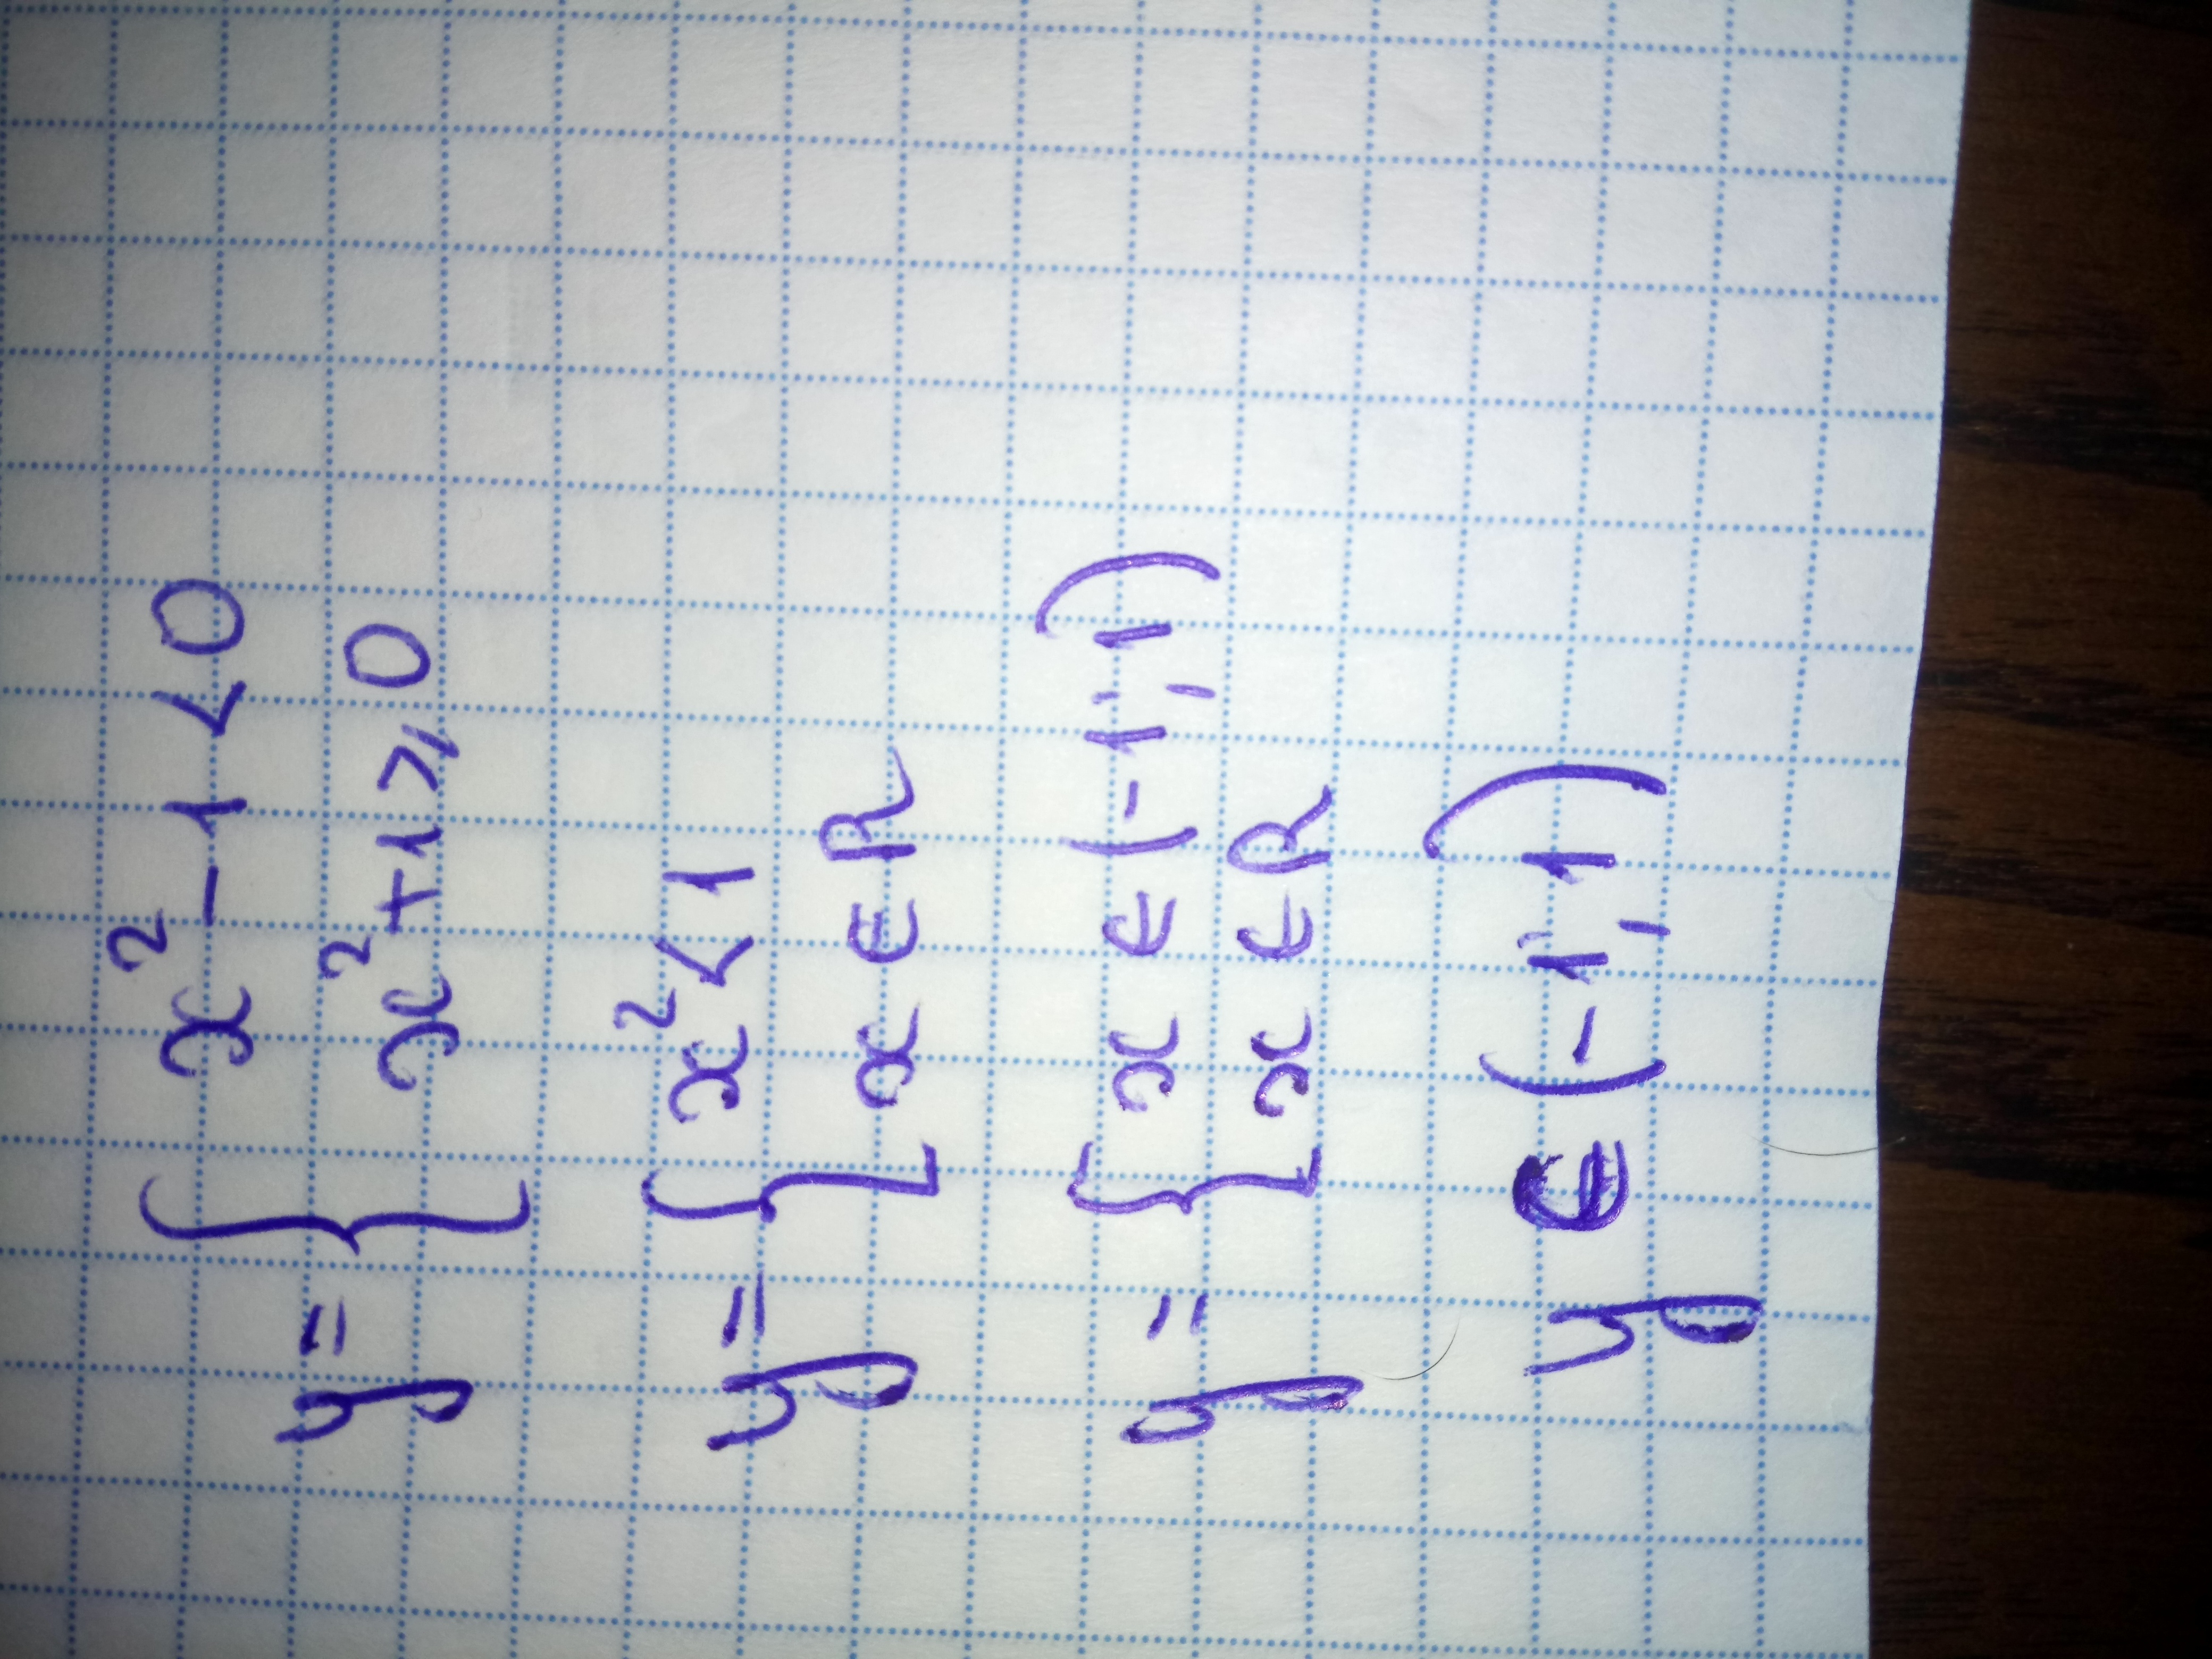 y = { x² - 1 < 0
x² + 1 ⩾ 0
y = { x² < 1
x ∈ R
y = { x ∈ (-1; 1)
x ∈ R
y ∈ (-1; 1)